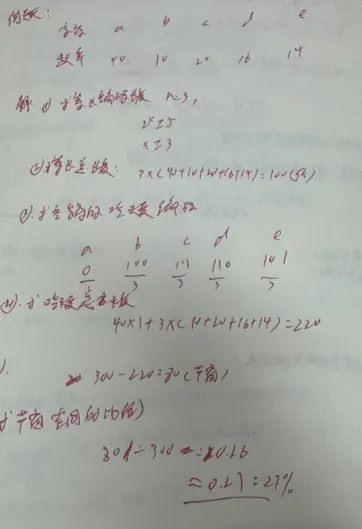 例题:
字符 a b c d e
频率 40 10 20 16 14
解 ① 求等长编码长度 n=3,
2ˣ≥5
x≥3
②求等长总长度: 3×(40+10+20+16+14)=300(位)
③.求字符的哈夫曼编码
a b c d e
0 100 111 110 101
1 3 3 3 3
④.求哈夫曼总长度
40×1+3×(10+20+16+14)=220
300-220=80(节省)
求节省空间的比值)
80÷300=0.26
≈0.27=27%